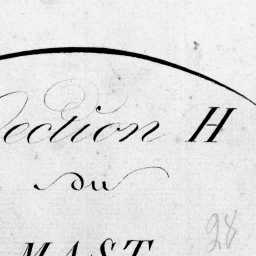 Section H
du
MAST
28